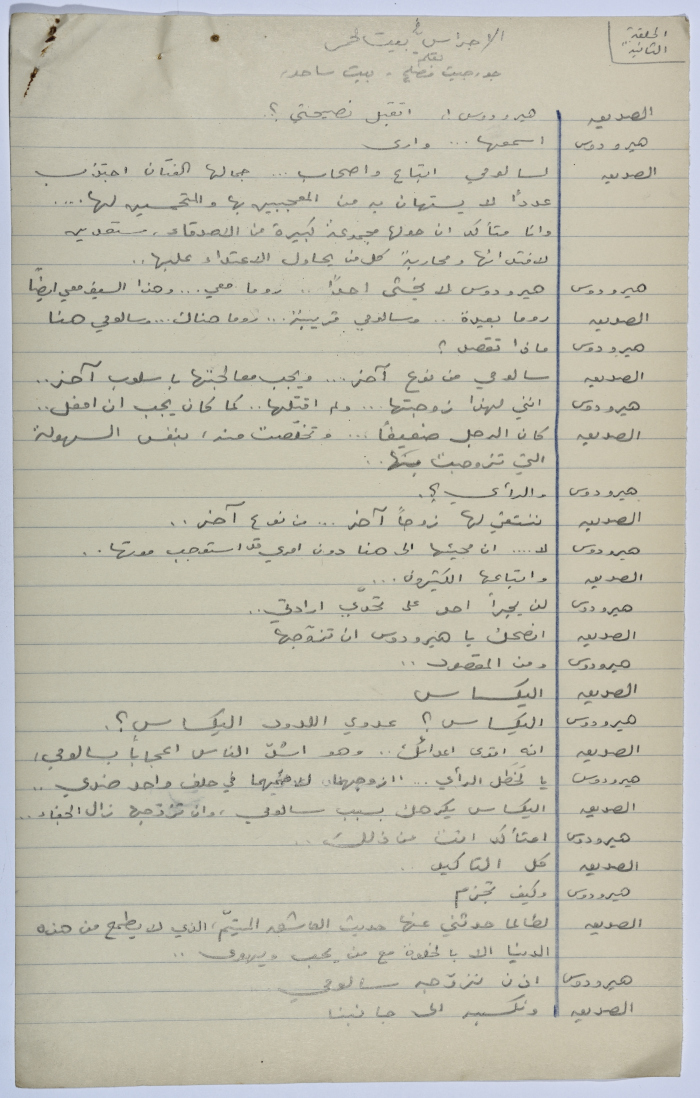 الحلقة
الثانية
الاجراس في بيت لحم
بقلم
جورجيت ، بيت ساحور
الصديق هيرودوس !. اتقبل نصيحتي ؟.
هيرودوس اسمعها ... وارى
الصديق لسالومي اتباع واصحاب ... جمالها الفتّان اجتذب
عدداً لا يستهان به من المعجبين بها والمتحمسين لها ....
وانا متأكد ان حولها مجموعة كبيرة من الاصدقاء ، مستعدين
لافتدائها ومحاربة كل من يحاول الاعتداء عليها ..
هيرودوس هيرودوس لا يخشى احداً .. روما معي ... وهذا السيف معي ايضاً
الصديق روما بعيدة .. وسالومي قريبة ... روما هناك ... وسالومي هنا
هيرودوس ماذا تقصد ؟
الصديق سالومي من نوع آخر ... ويجب معالجتها باسلوب آخر ..
هيرودوس انني لهذا زوجتها ... ولم اقتلها .. كما كان يجب ان افعل ..
الصديق كان الرجل ضعيفاً ... وتخلّصت منه ، بنفس السهولة
التي تزوجت بها ..
هيرودوس والرأي ؟.
الصديق ننتقي لها زوجاً آخر ... من نوع آخر ..
هيرودوس لا .... ان مجيئها الى هنا دون امري قد استوجب موتها ..
الصديق واتباعها الكثيرون ...
هيرودوس لن يجرأ احد على تحدّي ارادتي ..
الصديق انصحك يا هيرودوس ان تزوّجها
هيرودوس ومن المقصود ..
الصديق اليكساس
هيرودوس اليكساس ؟ عدوي اللدود اليكساس ؟.
الصديق انه اقوى اعدائك .. وهو اشدّ الناس اعجاباً بسالومي ،
هيرودوس يا لَخَطَل الرأي ... اازوجهما لاضمّهما في حلف واحد ضدي ..
الصديق اليكساس يكرهك بسبب سالومي ، وان تزوّجها زال الجفاء ..
هيرودوس امتأكد انت من ذلك ..
الصديق كل التأكيد ..
هيرودوس وكيف تجزم
الصديق لطالما حدثني عنها حديث العاشق المتيّم ، الذي لا يطمع من هذه
الدنيا الا بالخلوة مع من يحب ويهوى ..
هيرودوس اذن نزوّجه سالومي
الصديق ونكسبه الى جانبنا